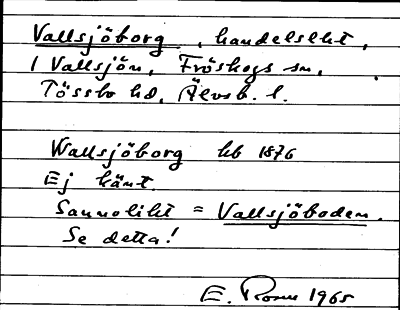 Vallsjöborg, handelslht,
i Vallsjön, Fröskogs sn,
Tössbo hd, Älvsb. l.
Wallsjöborg hb 1876
Ej känt.
Sannolikt = Vallsjöboden.
Se detta!
E. 1965